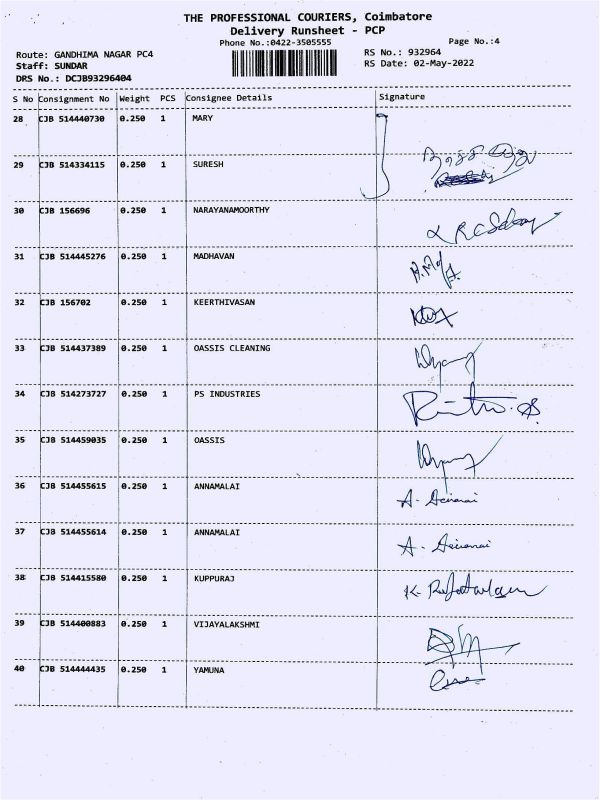 THE PROFESSIONAL COURIERS, Coimbatore
Delivery Runsheet - PCP
Phone No.:0422-3505555
Page No.:4
Route: GANDHIMA NAGAR PC4
RS No.: 932964
Staff: SUNDAR
RS Date: 02-May-2022
DRS No.: DCJB93296404
S No Consignment No Weight PCS Consignee Details Signature
28 CJB 514440730 0.250 1 MARY
29 CJB 514334115 0.250 1 SURESH
30 CJB 156696 0.250 1 NARAYANAMOORTHY
31 CJB 514445276 0.250 1 MADHAVAN
32 CJB 156702 0.250 1 KEERTHIVASAN
33 CJB 514437389 0.250 1 OASSIS CLEANING
34 CJB 514273727 0.250 1 PS INDUSTRIES
35 CJB 514459035 0.250 1 OASSIS
36 CJB 514455615 0.250 1 ANNAMALAI
37 CJB 514455614 0.250 1 ANNAMALAI
38 CJB 514415580 0.250 1 KUPPURAJ
39 CJB 514400883 0.250 1 VIJAYALAKSHMI
40 CJB 514444435 0.250 1 YAMUNA